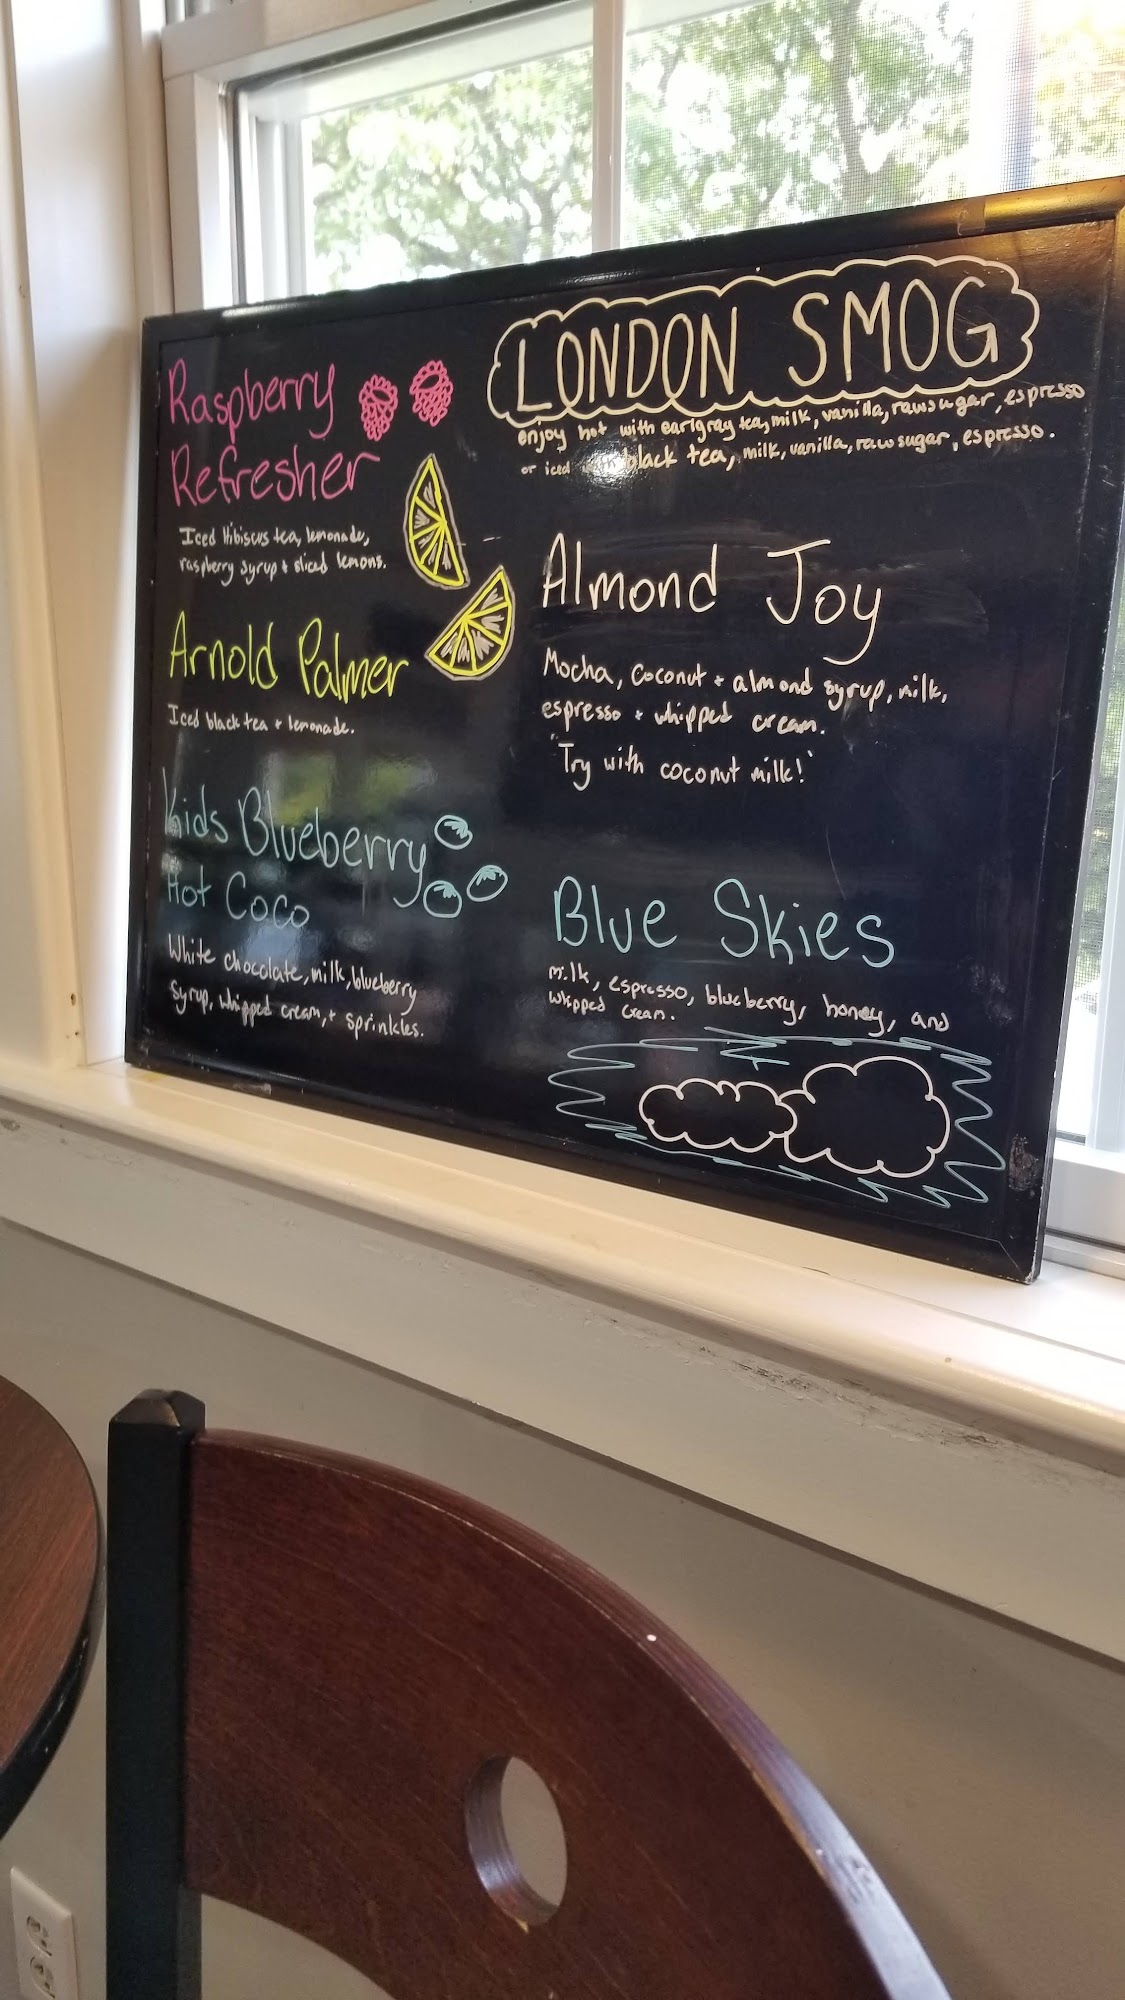 Raspberry
Refresher
Iced Hibiscus tea, lemonade,
raspberry syrup + sliced lemons.
Arnold Palmer
Iced black tea + lemonade.
Kids Blueberry
Hot Coco
White chocolate, milk, blueberry
syrup, whipped cream, + sprinkles.
LONDON SMOG
enjoy hot with earlgray tea, milk, vanilla, raw sugar, espresso
or iced black tea, milk, vanilla, raw sugar, espresso.
Almond Joy
Mocha, coconut + almond syrup, milk,
espresso + whipped cream.
"Try with coconut milk!"
Blue Skies
milk, espresso, blueberry, honey, and
whipped cream.